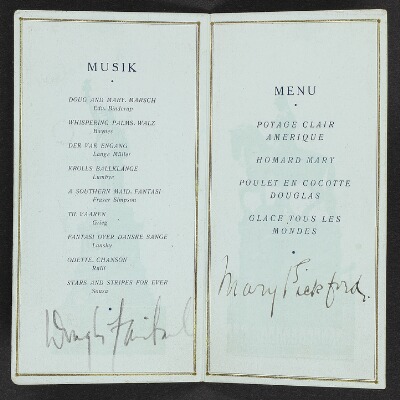 MUSIK
DOUG AND MARY, MARSCH
WHISPERING PALMS, WALZ
DER VAR ENGANG
Lange Müller
KROLLS BALLKLÄNGE
A SOUTHERN MAID, FANTASI
Fraser Simpson
TIL VAAREN
Grieg
FANTASI OVER DANSKE SANGE
ODETTE, CHANSON
STARS AND STRIPES FOR EVER
Sousa
MENU
POTAGE CLAIR
AMERIQUE
HOMARD MARY
POULET EN COCOTTE
DOUGLAS
GLACE TOUS LES
MONDES
Mary Pickford.